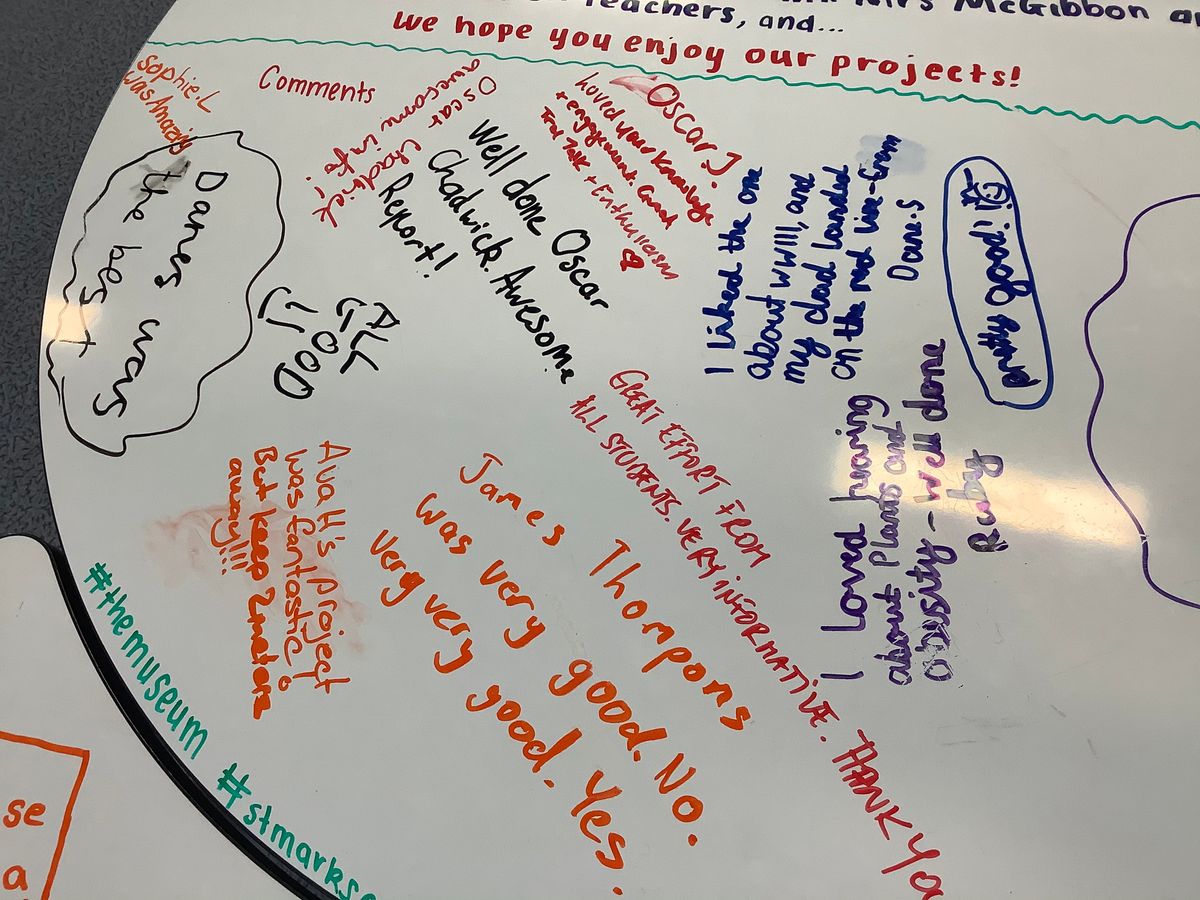 Mrs McGibbon
Teachers, and...
We hope you enjoy our projects!
Comments
Sophie.L
was Amazing
Danes was
the best
Oscar Chadrick
awesome info!
Well done Oscar
Chadwick. Awesome
Report!
Oscar J.
Loved your Knowledge
+ engagement. Good
Talk + Enthusicasm
I liked the one
about WWIII, and
my dad landed
on the red line-from
Dane.S
pretty good!
ALL
GOOD
I Loved hearing
about Plants and
obisity - well done
Ruby
GREAT EFFORT FROM
ALL STUDENTS. VERY INFORMATIVE. THANK YO
James Thompons
was very good. No.
very very good. Yes.
Ava H's Project
was fantastic
But keep 2 meters
away!!!!
#themuseum #stmarks
se
a